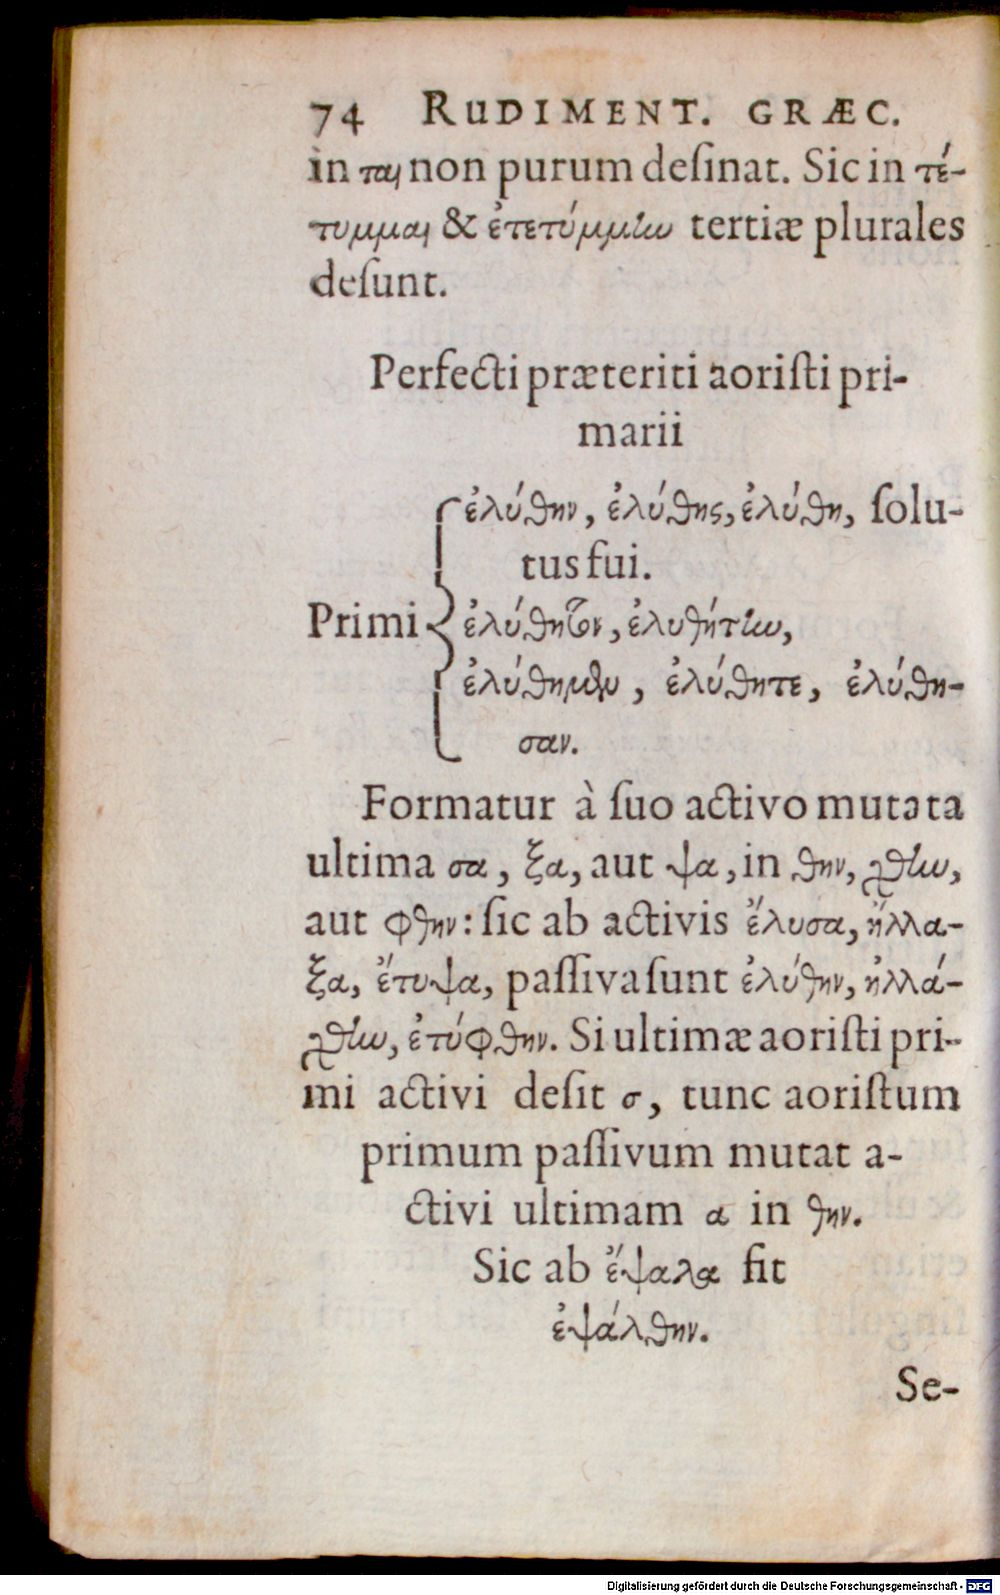 74 RUDIMENT. GRÆC.
in ται non purum desinat. Sic in τέ-
τυμμαι & ἐτετύμμην tertiæ plurales
desunt.
Perfecti præteriti aoristi pri-
marii
ἐλύθην, ἐλύθης, ἐλύθη, solu-
tus fui.
Primi ἐλύθητον, ἐλυθήτην,
ἐλύθημεν, ἐλύθητε, ἐλύθη-
σαν.
Formatur à suo activo mutata
ultima σα, ξα, aut ψα, in θην, χθην,
aut φθην: sic ab activis ἔλυσα, ἤλλα-
ξα, ἔτυψα, passiva sunt ἐλύθην, ἠλλά-
χθην, ἐτύφθην. Si ultimæ aoristi pri-
mi activi desit σ, tunc aoristum
primum passivum mutat a-
ctivi ultimam α in θην.
Sic ab ἔψαλα fit
ἐψάλθην.
Se-
Digitalisierung gefördert durch die Deutsche Forschungsgemeinschaft - DFG